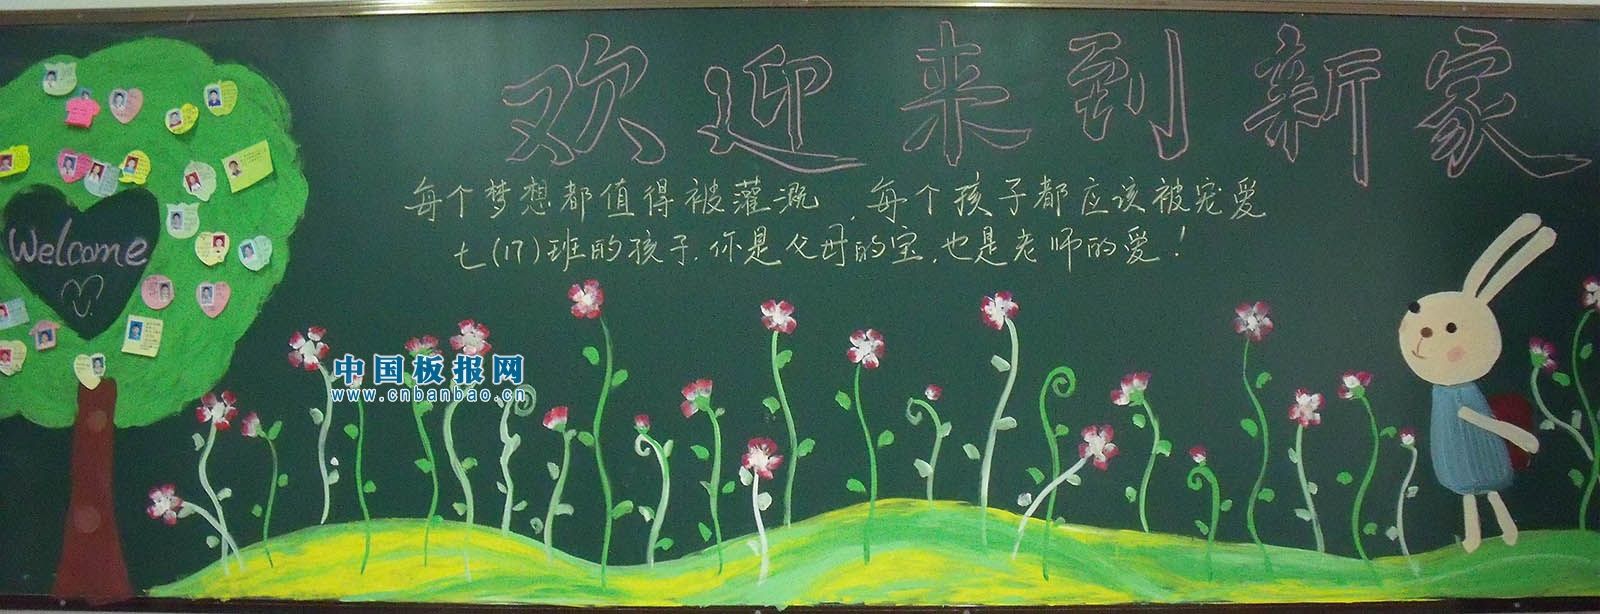 欢迎来到新家
每个梦想都值得被灌溉,每个孩子都应该被宠爱
七(17)班的孩子.你是父母的宝,也是老师的爱!
Welcome
中国板报网
www.cnbanbao.cn